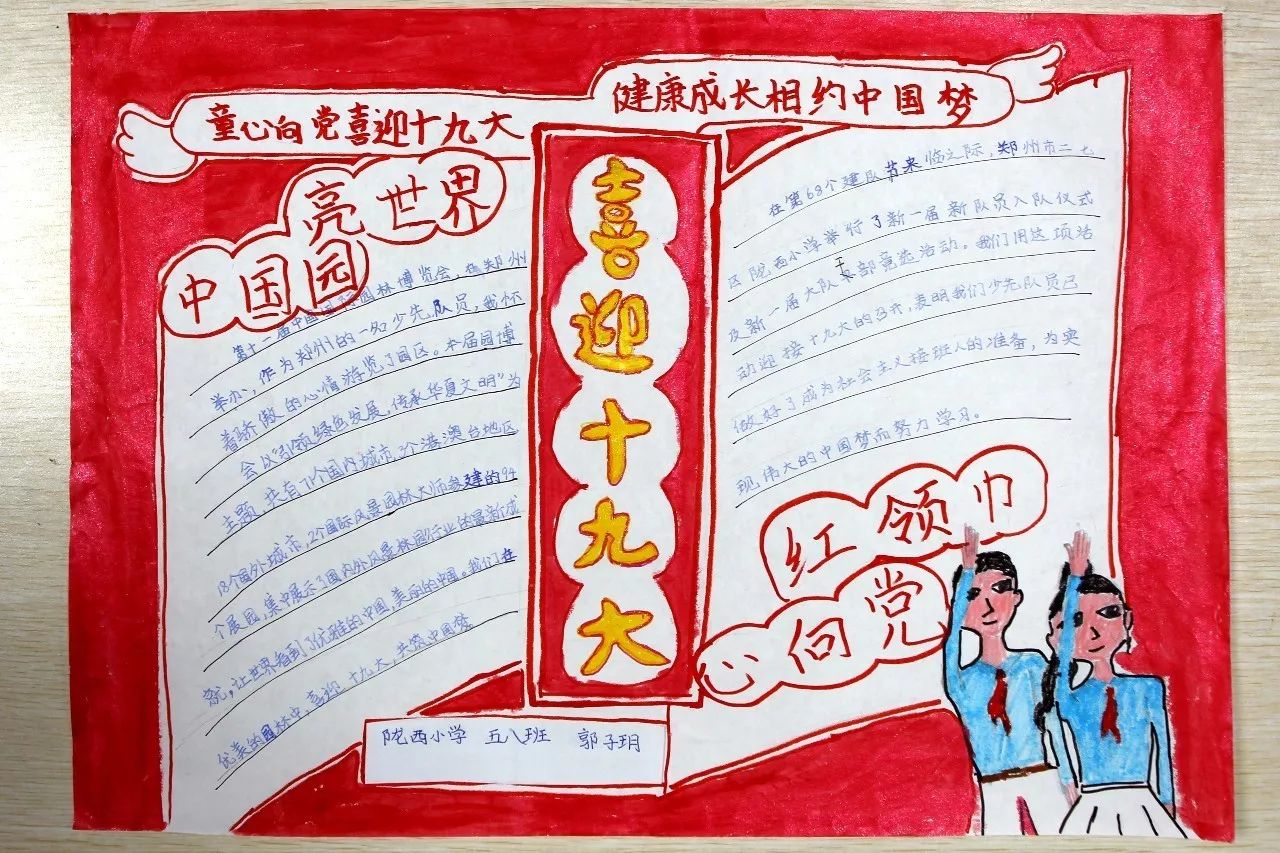 童心向党喜迎十九大
健康成长相约中国梦
亮世界
中国园
第十一届中国国际园林博览会,在郑州
举办,作为郑州的一名少先队员,我怀
着骄傲的心情游览了园区。本届园博
会以“引领绿色发展,传承华夏文明”为
主题,共有71个国内城市,3个港澳台地区
18个国外城市,2个国际风景园林大师参建的94
个展园,集中展示了国内外风景林园行业的最新成
就,让世界看到了优雅的中国,美丽的中国。我们在
优美的园林中,喜迎十九大,共筑中国梦
喜迎十九大
在第68个建队节来临之际,郑州市二七
区陇西小学举行了新一届新队员入队仪式
及新一届大队干部竞选活动。我们用这项活
动迎接十九大的召开,表明我们少先队员已
做好了成为社会主义接班人的准备,为实
现伟大的中国梦而努力学习。
红领巾
心向党
陇西小学 五八班 郭子玥